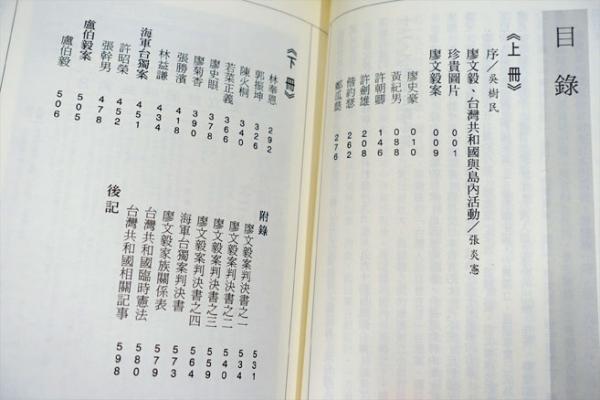 目錄
《上冊》
序／吳樹民
廖文毅、台灣共和國與島內活動／張炎憲
珍貴圖片 001
廖文毅案 009
廖史豪 010
黃紀男 088
許朝卿 146
許劍雄 208
偕約瑟 262
鄭瓜瓞 276
《下冊》
林奉恩 292
郭振坤 326
陳火桐 340
若菜正義 366
廖史眼 378
廖菊香 390
張勝濱 418
林益謙 434
海軍台獨案 451
許昭榮 452
張幹男 478
盧伯毅案 505
盧伯毅 506
附錄
廖文毅案判決書之一 531
廖文毅案判決書之二 534
廖文毅案判決書之三 540
廖文毅案判決書之四 559
海軍台獨案判決書 564
廖文毅家族關係表 573
台灣共和國臨時憲法 579
台灣共和國相關記事 580
後記 598